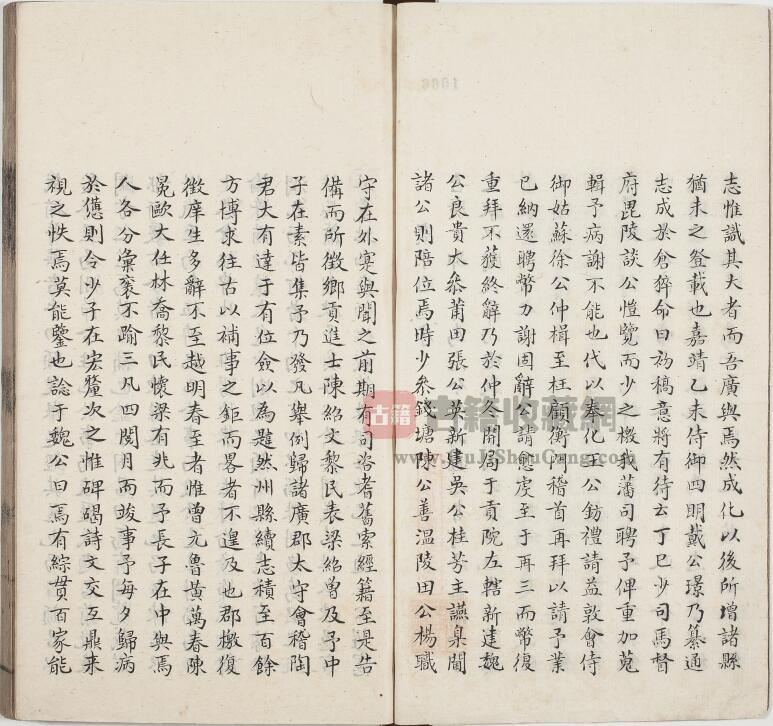 志惟識其大者而吾廣與焉然成化以後所增諸縣
猶未之登載也嘉靖乙未侍御四明戴公璟乃纂通
志成於倉猝命曰初稿意將有待云丁巳少司馬督
府毘陵談公愷覽而少之檄我藩司聘予俾重加蒐
輯予病謝不能也代以奉化王公鈁禮請益敦會侍
御姑蘇徐公仲楫至枉顧衡門稽首再拜以請予業
已納還聘幣力謝固辭公請愈虔至于再三而幣復
重拜不獲終辭乃於仲冬開局于貢院左轄新建魏
公良貴大叅莆田張公英新建吳公桂芳主讌臬閫
諸公則陪位焉時少叅錢塘陳公善溫陵田公楊職
守在外寔與聞之前期有司咨耆舊索經籍至是告
備而所徵鄉貢進士陳紹文黎民表梁紹曾及予中
子在素皆集予乃發凡舉例歸諸廣郡太守會稽陶
君大有達于有位僉以為韙然州縣續志積至百餘
方博求往古以補事之鉅而畧者不遑及也郡檄復
徵庠生多辭不至越明春至者惟曾元魯黃萬春陳
冕歐大任林喬黎民懷梁有兆而予長子在中與焉
人各分彙袤不踰三凡四閱月而竣事予每夕歸病
於憊則令少子在宏釐次之惟碑碣詩文交互鼎来
視之怢焉莫能鑒也諗于魏公曰焉有綜貫百家能
1066
古籍 古籍收藏網
www.GuJiShouCang.com